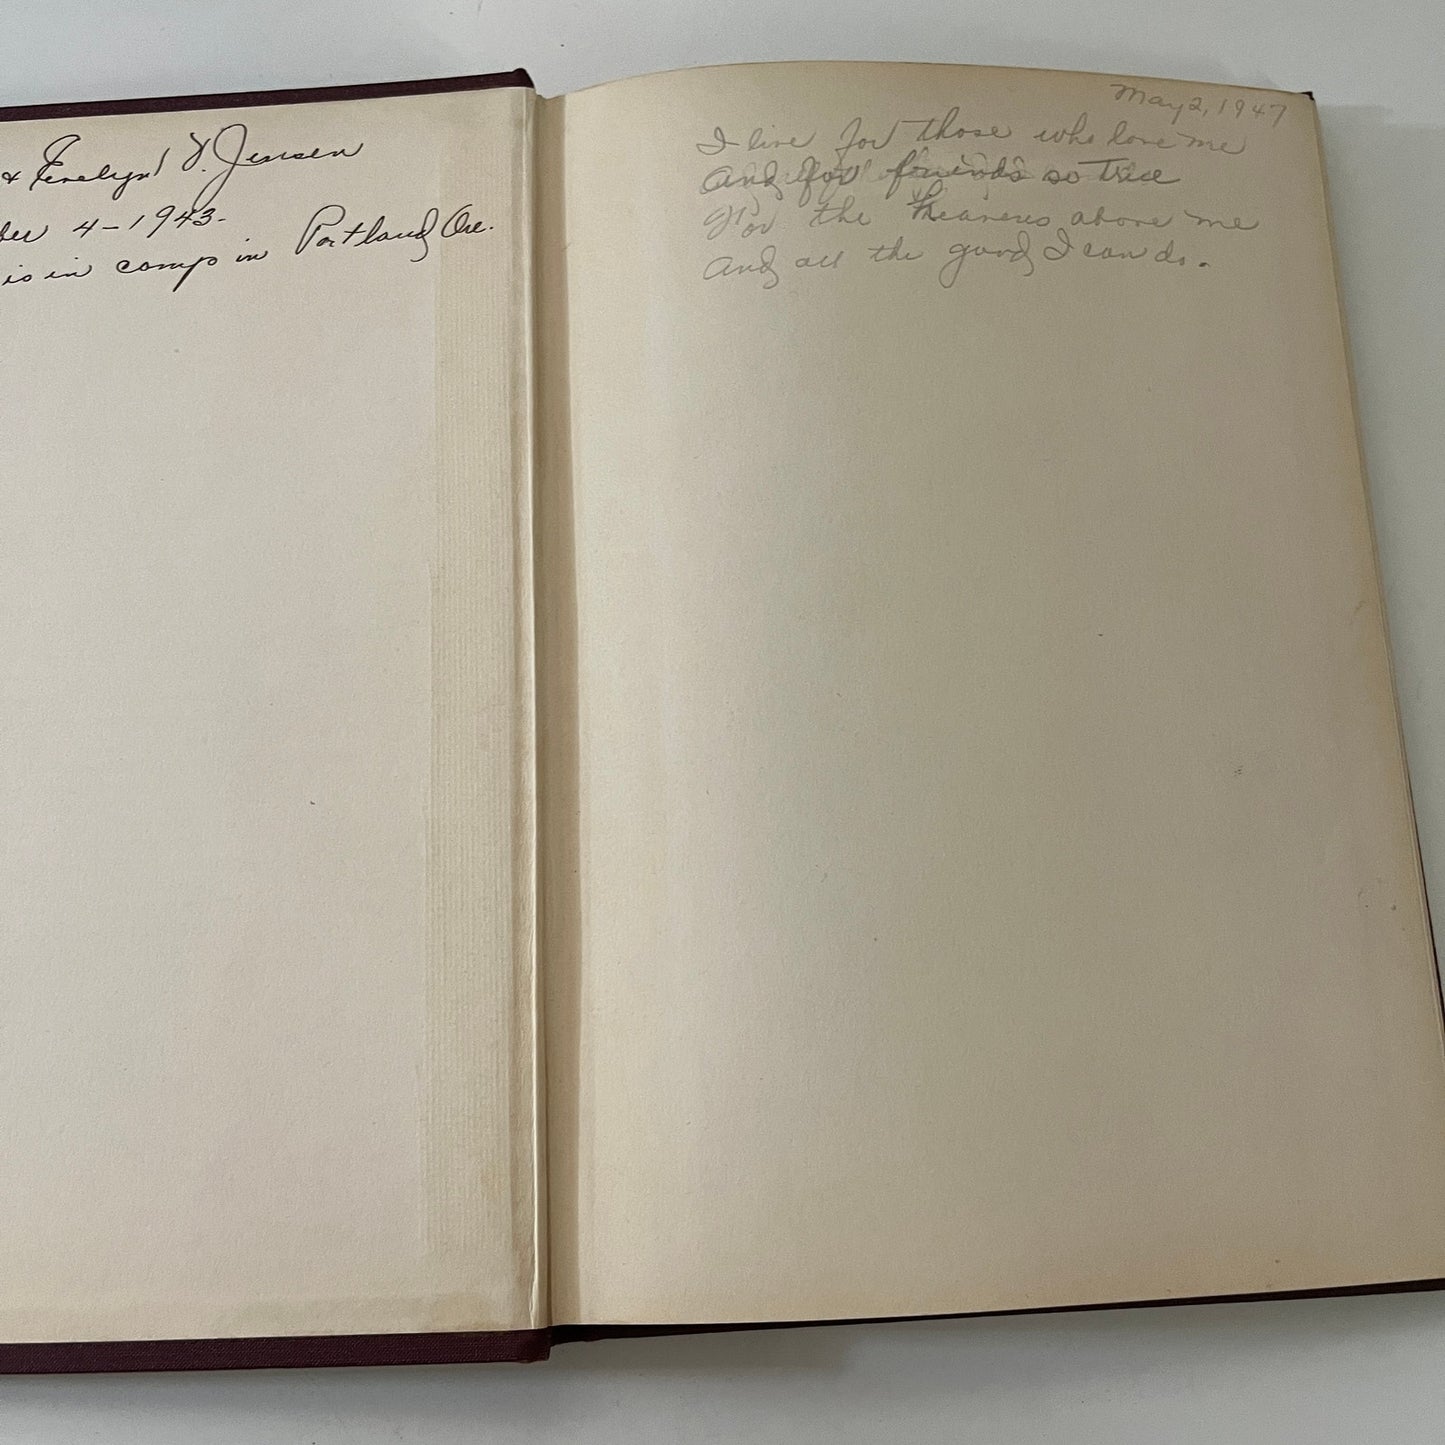 & Evelyn V. Jensen
ber 4-1943.
is in camp in Portland Ore.
May 2, 1947
I live for those who love me
And for friends so True
For the Heavens above me
And all the good I can do.